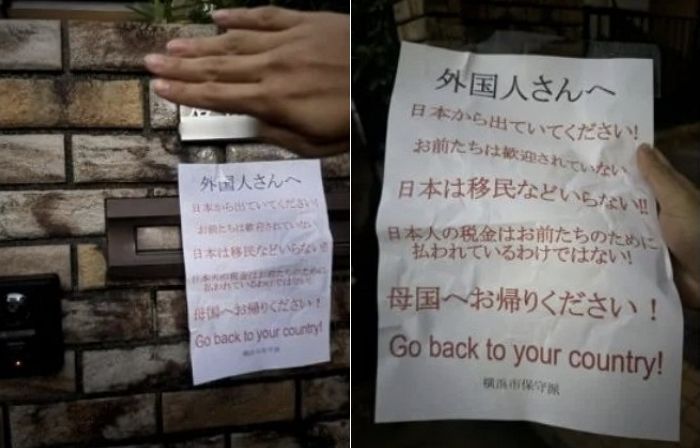 外国人さんへ
日本から出ていてください!
お前たちは歓迎されていない
日本は移民などいらない!!
日本人の税金はお前たちのために
払われているわけではない!
母国へお帰りください!
Go back to your country!
横浜市保守派
外国人さんへ
日本から出ていてください!
お前たちは歓迎されていない
日本は移民などいらない!!
日本人の税金はお前たちのために
払われているわけではない!
母国へお帰りください!
Go back to your country!
横浜市保守派